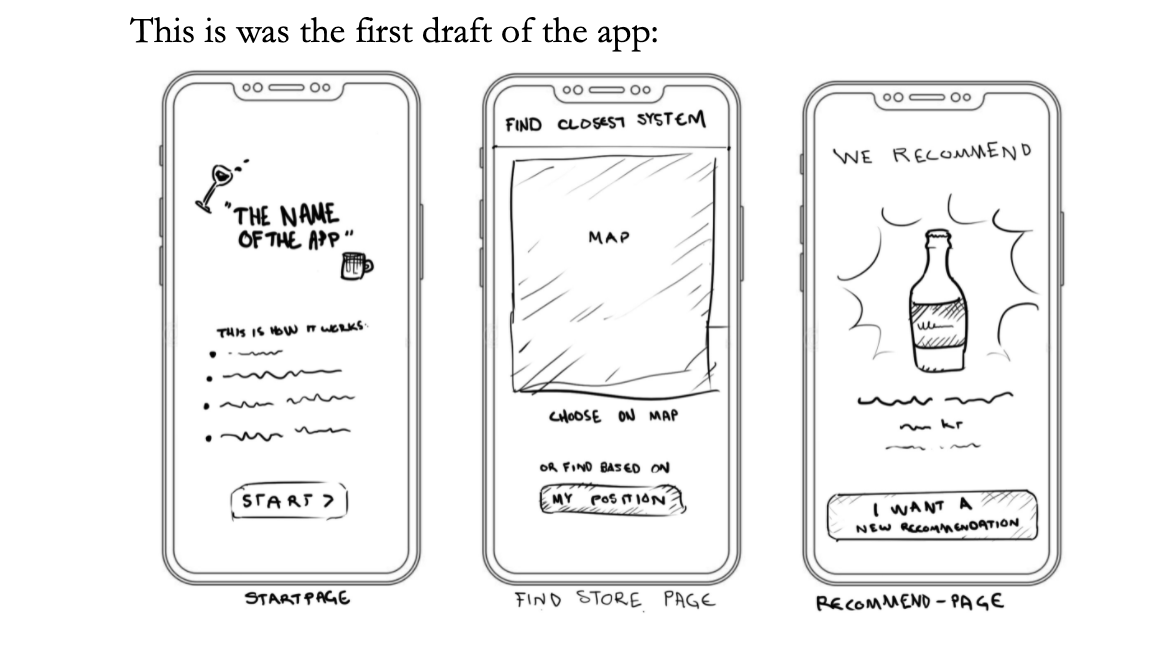 This is was the first draft of the app:
"THE NAME
OF THE APP"
THIS IS HOW IT WERKS:
START >
STARTPAGE
FIND CLOSEST SYSTEM
MAP
CHOOSE ON MAP
OR FIND BASED ON
MY POSITION
FIND STORE PAGE
WE RECOMMEND
kr
I WANT A
NEW RECOMMENDATION
RECOMMEND-PAGE